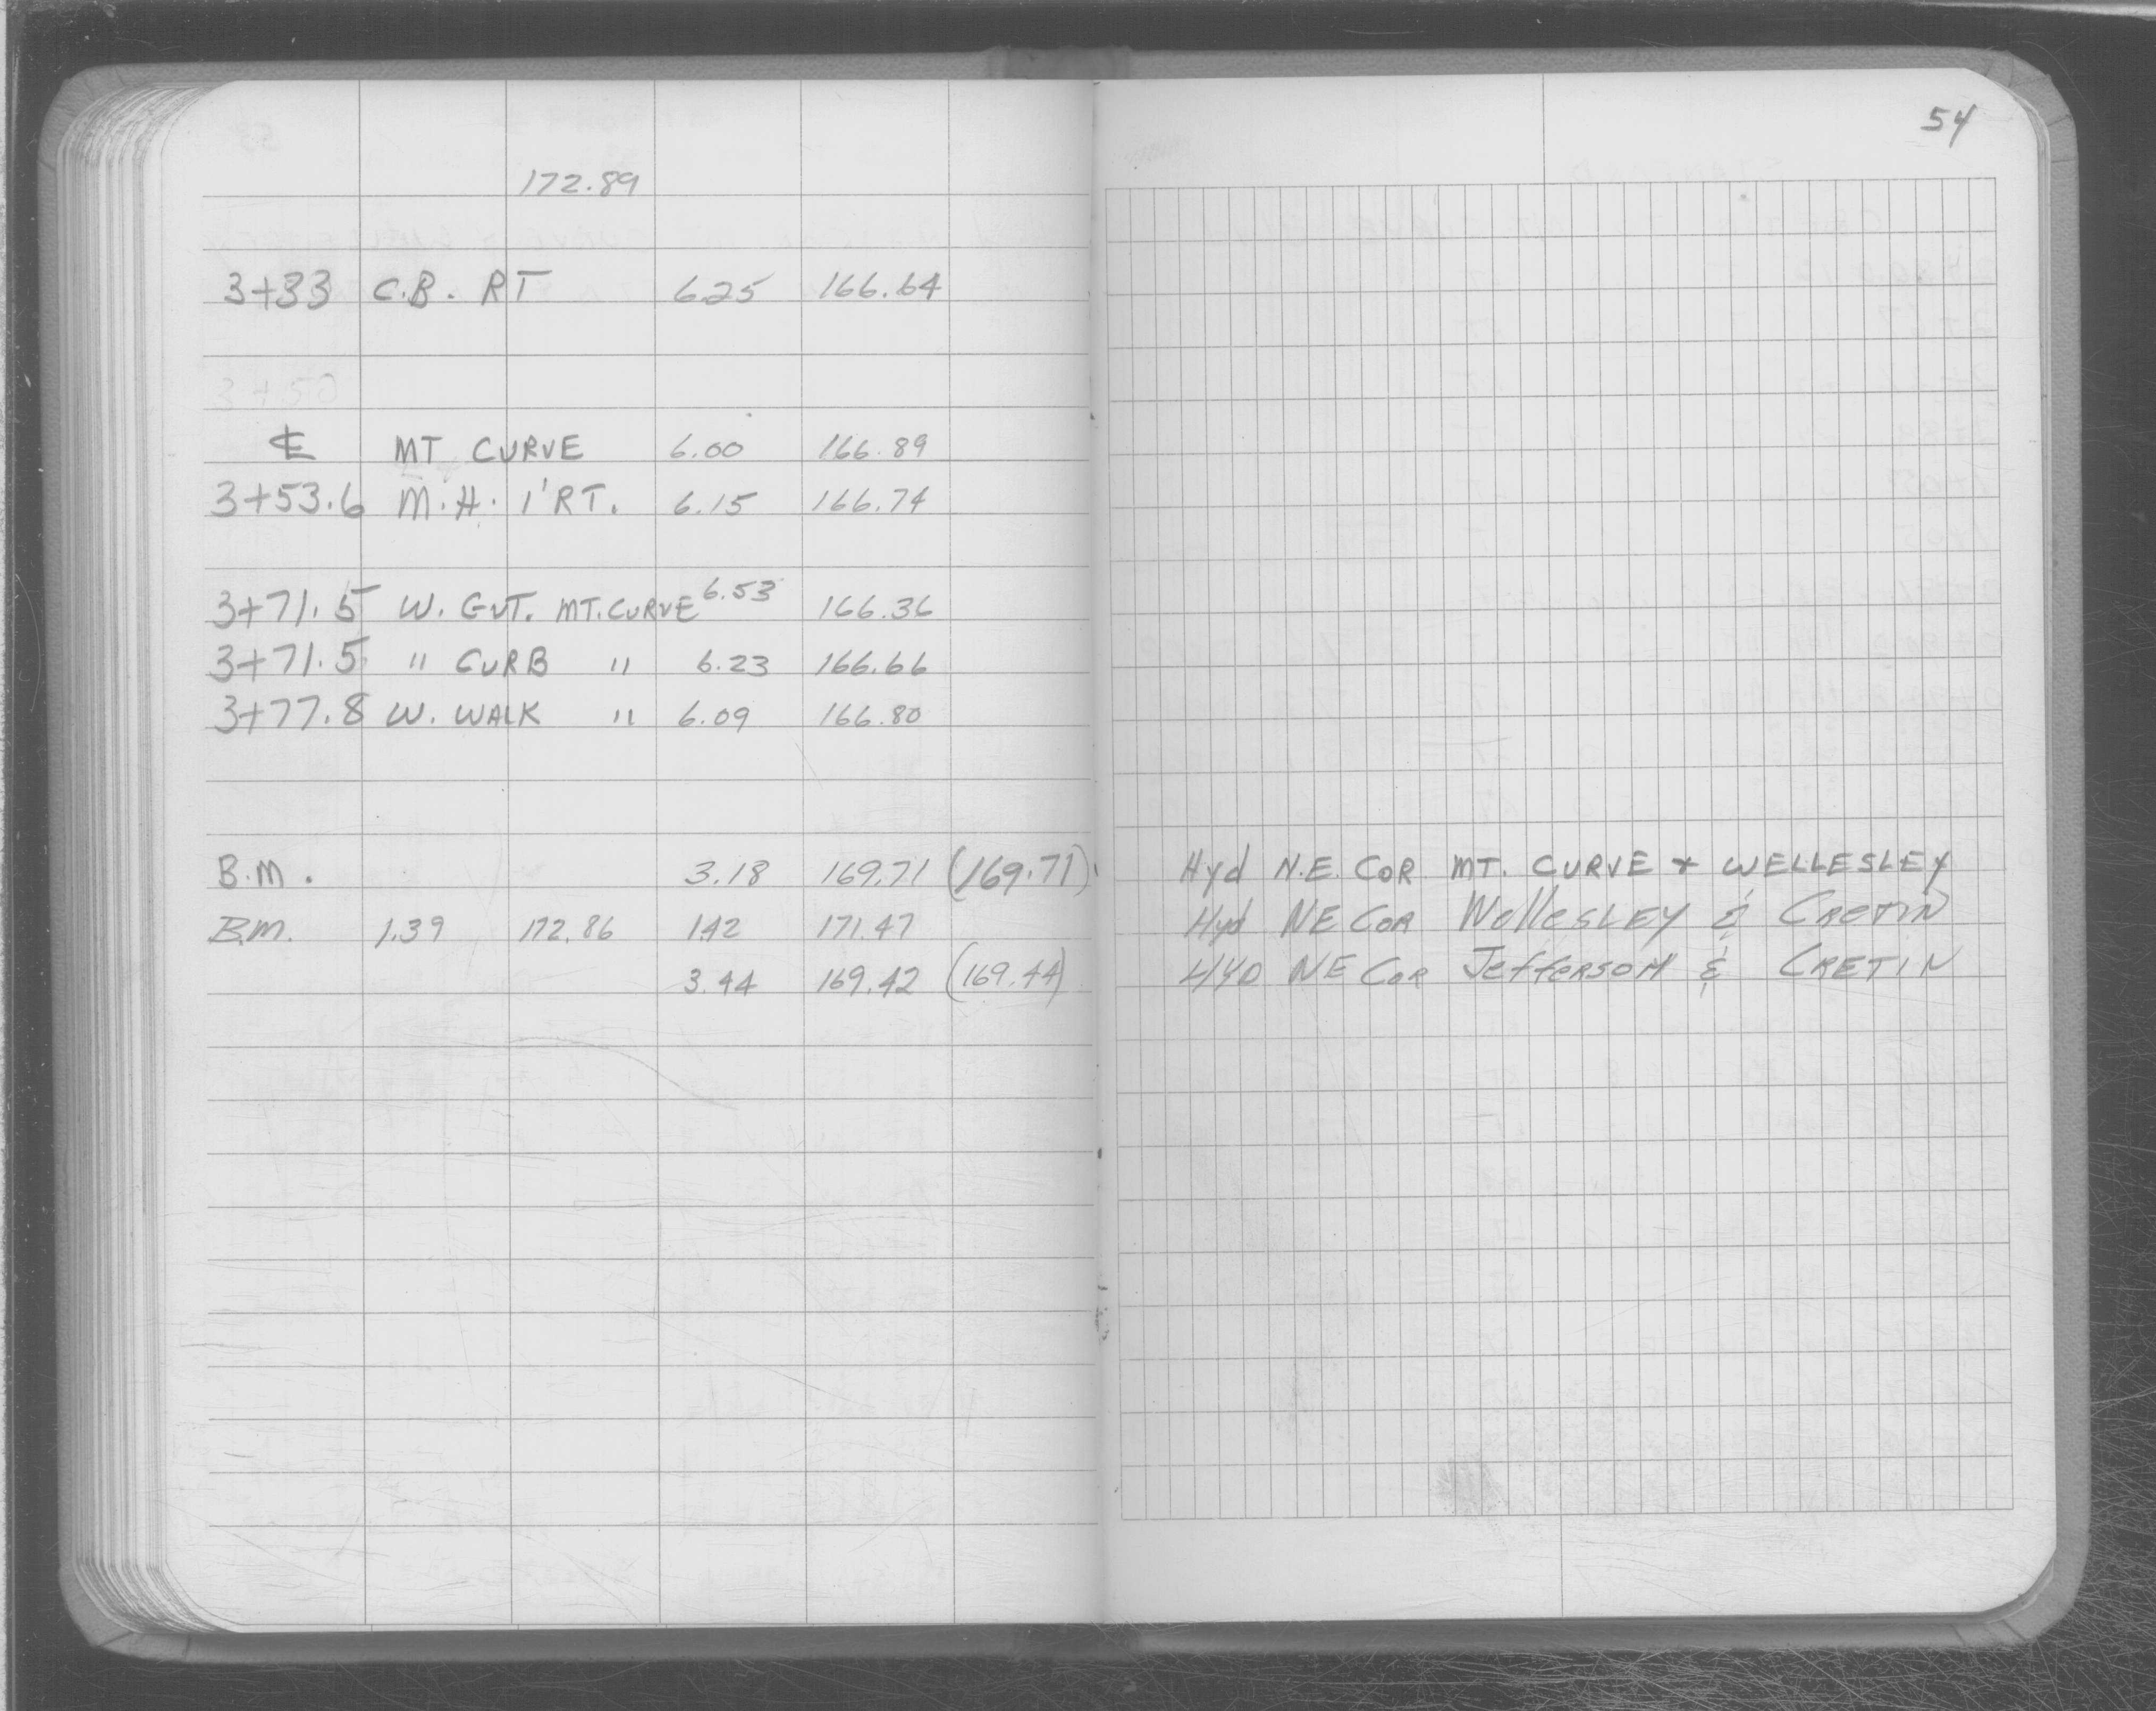 54
172.89
3+33 C.B. RT 6.25 166.64
3+50
℄ MT CURVE 6.00 166.89
3+53.6 M.H. 1' RT. 6.15 166.74
3+71.5 W. GUT. MT. CURVE 6.53 166.36
3+71.5 " CURB " 6.23 166.66
3+77.8 W. WALK " 6.09 166.80
B.M. 3.18 169.71 (169.71) Hyd N.E. COR MT. CURVE + WELLESLEY
B.M. 1.39 172.86 1.42 171.47 Hyd NE COR WelleSLEY & CRETIN
3.44 169.42 (169.44) HYD NE COR JeffeRSON & CRETIN